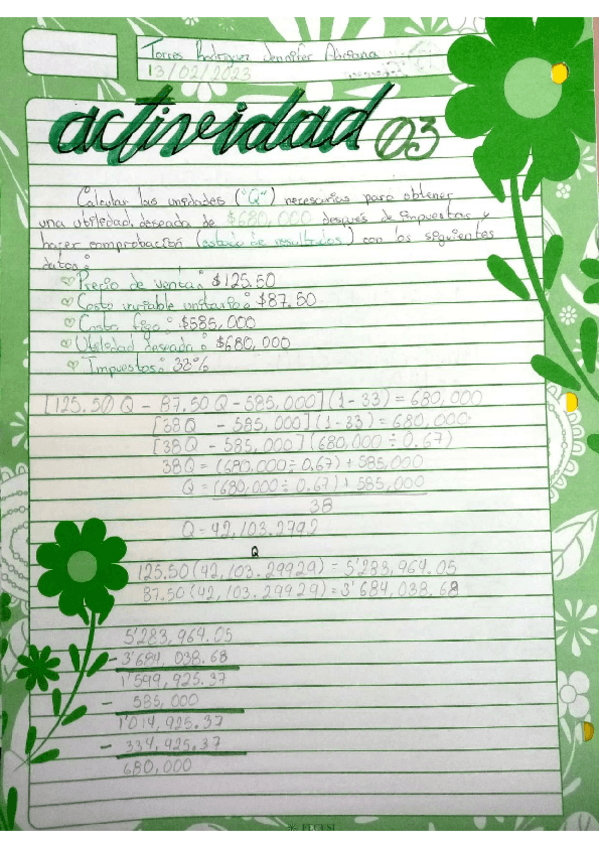 Torres Rodriguez Jennifer Adriana
13/02/2023
actividad 03
Calcular las unidades ("Q") necesarias para obtener
una utilidad deseada de $680,000 después de impuestos y
hacer comprobación (estado de resultados) con los siguientes
datos:
Precio de venta: $125.50
Costo variable unitario: $87.50
Costo fijo: $585,000
Utilidad deseada: $680,000
Impuestos: 33%
[125.50 Q - 87.50 Q - 585,000] (1-33) = 680,000
[38Q - 585,000] (1-33) = 680,000
[38Q - 585,000] (680,000 ÷ 0.67)
38Q = (680,000 ÷ 0.67) + 585,000
Q = (680,000 ÷ 0.67) + 585,000
38
Q = 42,103.2992
Q
125.50 (42,103.29929) = 5'283,964.05
87.50 (42,103.29929) = 3'684,038.68
5'283,964.05
- 3'684,038.68
1'599,925.37
- 585,000
1'014,925.37
- 334,925.37
680,000